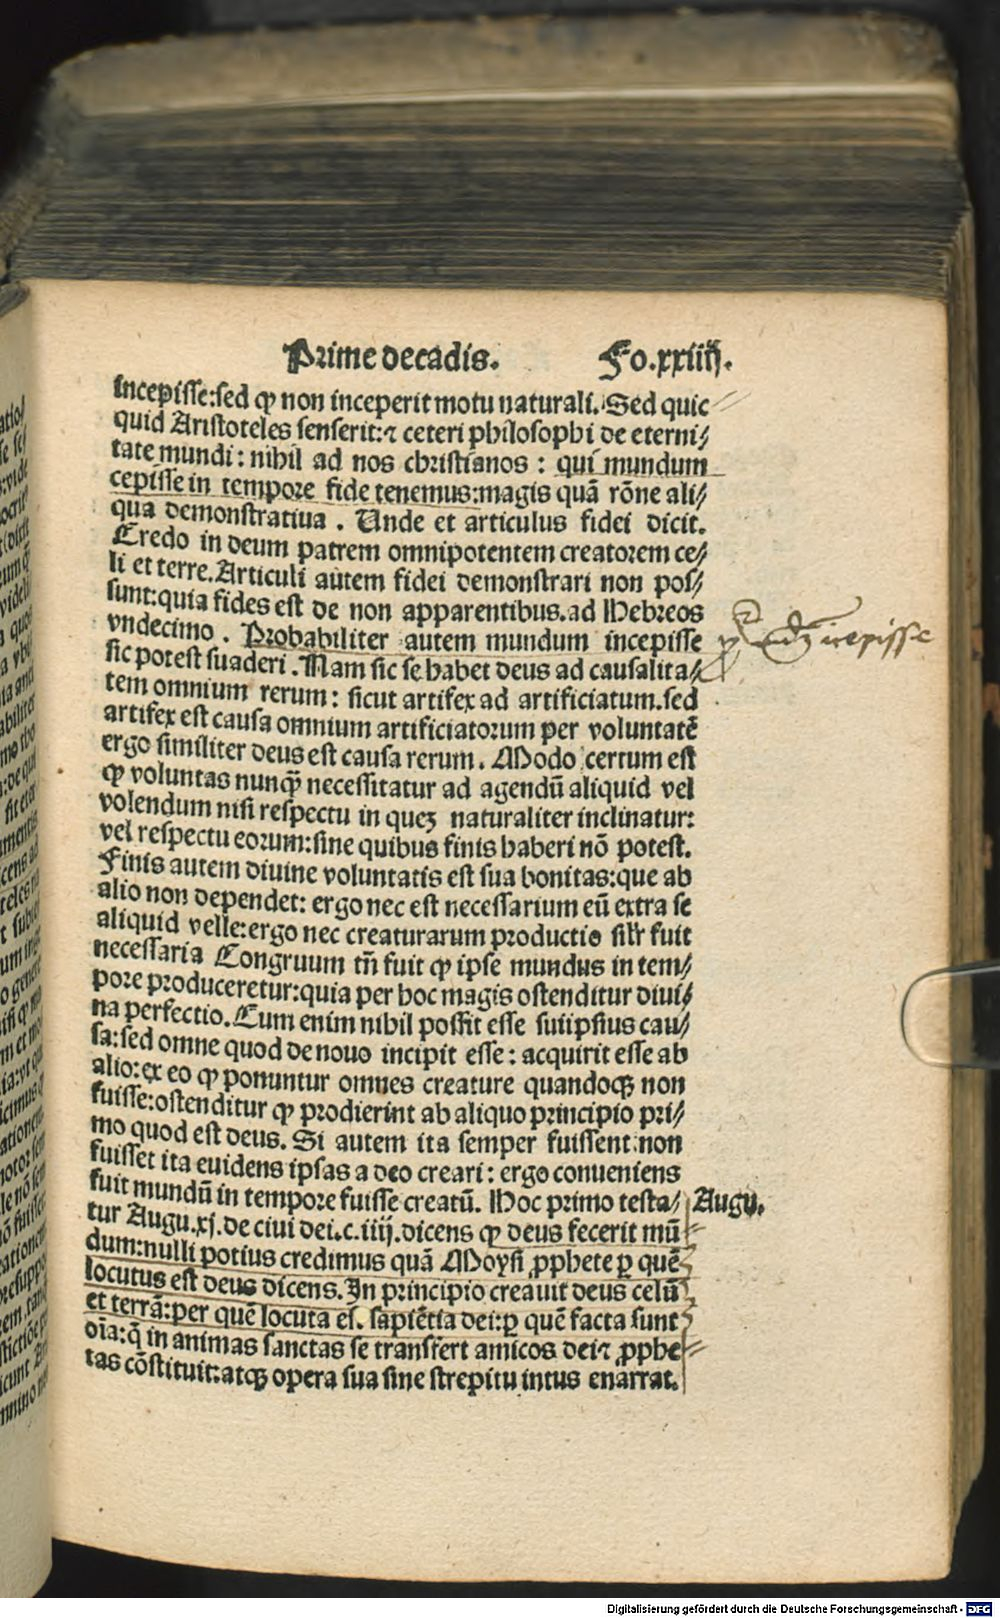 Prime decadis. Fo.xxiiij.
incepisse:sed ꝙ non inceperit motu naturali. Sed quic
quid Aristoteles senserit:⁊ ceteri philosophi de eterni/
tate mundi: nihil ad nos christianos : qui mundum
cepisse in tempore fide tenemus:magis quā rōne ali/
qua demonstratiua . Unde et articulus fidei dicit.
Credo in deum patrem omnipotentem creatorem ce/
li et terre. Articuli autem fidei demonstrari non pos/
sunt:quia fides est de non apparentibus.ad Hebreos
vndecimo . Probabiliter autem mundum incepisse
sic potest suaderi . Nam sic se habet deus ad causalita/
tem omnium rerum: sicut artifex ad artificiatum.sed
artifex est causa omnium artificiatorum per voluntatē
ergo similiter deus est causa rerum . Modo certum est
ꝙ voluntas nunq̄ necessitatur ad agendū aliquid vel
volendum nisi respectu in quez naturaliter inclinatur:
vel respectu eorum:sine quibus finis haberi nō potest.
Finis autem diuine voluntatis est sua bonitas:que ab
alio non dependet: ergo nec est necessarium eū extra se
aliquid velle:ergo nec creaturarum productio silr̄ fuit
necessaria Congruum tn̄ fuit ꝙ ipse mundus in tem/
pore produceretur:quia per hoc magis ostenditur diui/
na perfectio. Cum enim nihil possit esse suiipsius cau/
sa:sed omne quod de nouo incipit esse: acquirit esse ab
alio:ex eo ꝙ ponuntur omnes creature quandoqꝫ non
fuisse:ostenditur ꝙ prodierint ab aliquo principio pri/
mo quod est deus. Si autem ita semper fuissent:non
fuisset ita euidens ipsas a deo creari: ergo conueniens
fuit mundū in tempore fuisse creatū. Hoc primo testa/ Augu.
tur Augu.xj.de ciui dei.c.iiij.dicens ꝙ deus fecerit mū
dum:nulli potius credimus quā Moysi ꝓphete ꝑ quē
locutus est deus dicens. In principio creauit deus celū
et terrā:per quē locuta es. sapiētia dei:ꝑ quē facta sunt
oīa:q̄ in animas sanctas se transfert amicos dei⁊ ꝓphe
tas cōstituit:atqꝫ opera sua sine strepitu intus enarrat.
Digitalisierung gefördert durch die Deutsche Forschungsgemeinschaft - DFG